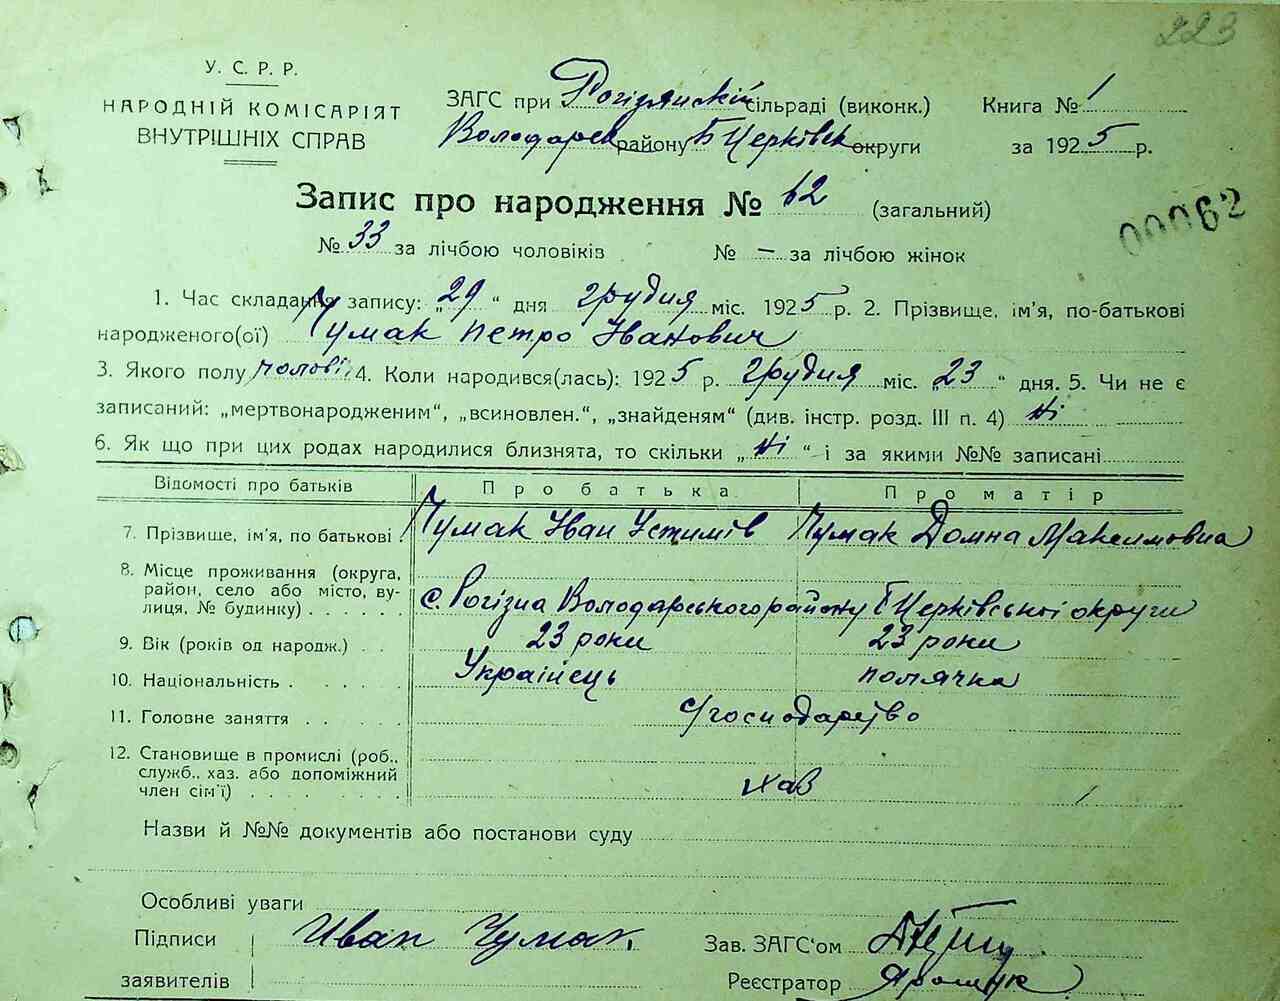 223
У. С. Р. Р.
НАРОДНІЙ КОМІСАРІЯТ
ВНУТРІШНІХ СПРАВ
ЗАГС при Рогізянскій сільраді (виконк.) Книга № 1
Володарск району Б Церківск округи за 1925 р.
Запис про народження № 62 (загальний)
00062
№ 33 за лічбою чоловіків № — за лічбою жінок
1. Час складання запису: „29“ дня грудня міс. 1925 р. 2. Прізвище, ім'я, по-батькові
народженого(ої) Чумак Петро Іванович
3. Якого полу чолові 4. Коли народився(лась): 1925 р. грудня міс. „23“ дня. 5. Чи не є
записаний: „мертвонародженим“, „всиновлен.“, „знайденям“ (див. інстр. розд. III п. 4) ні
6. Як що при цих родах народилися близнята, то скільки „ні“ і за якими №№ записані
Відомості про батьків Про батька Про матір
7. Прізвище, ім'я, по батькові Чумак Іван Устимів Чумак Домна Максимовна
8. Місце проживання (округа,
район, село або місто, ву-
лиця, № будинку) с. Рогізна Володарського району Б Церківської округи
9. Вік (років од народж.) 23 роки 23 роки
10. Національність Українець полячка
11. Головне заняття с/господарство
12. Становище в промислі (роб.,
служб., хаз. або допоміжний
член сім'ї) хаз
Назви й №№ документів або постанови суду
Особливі уваги
Підписи Иван Чумак. Зав. ЗАГС'ом
заявителів Реєстратор